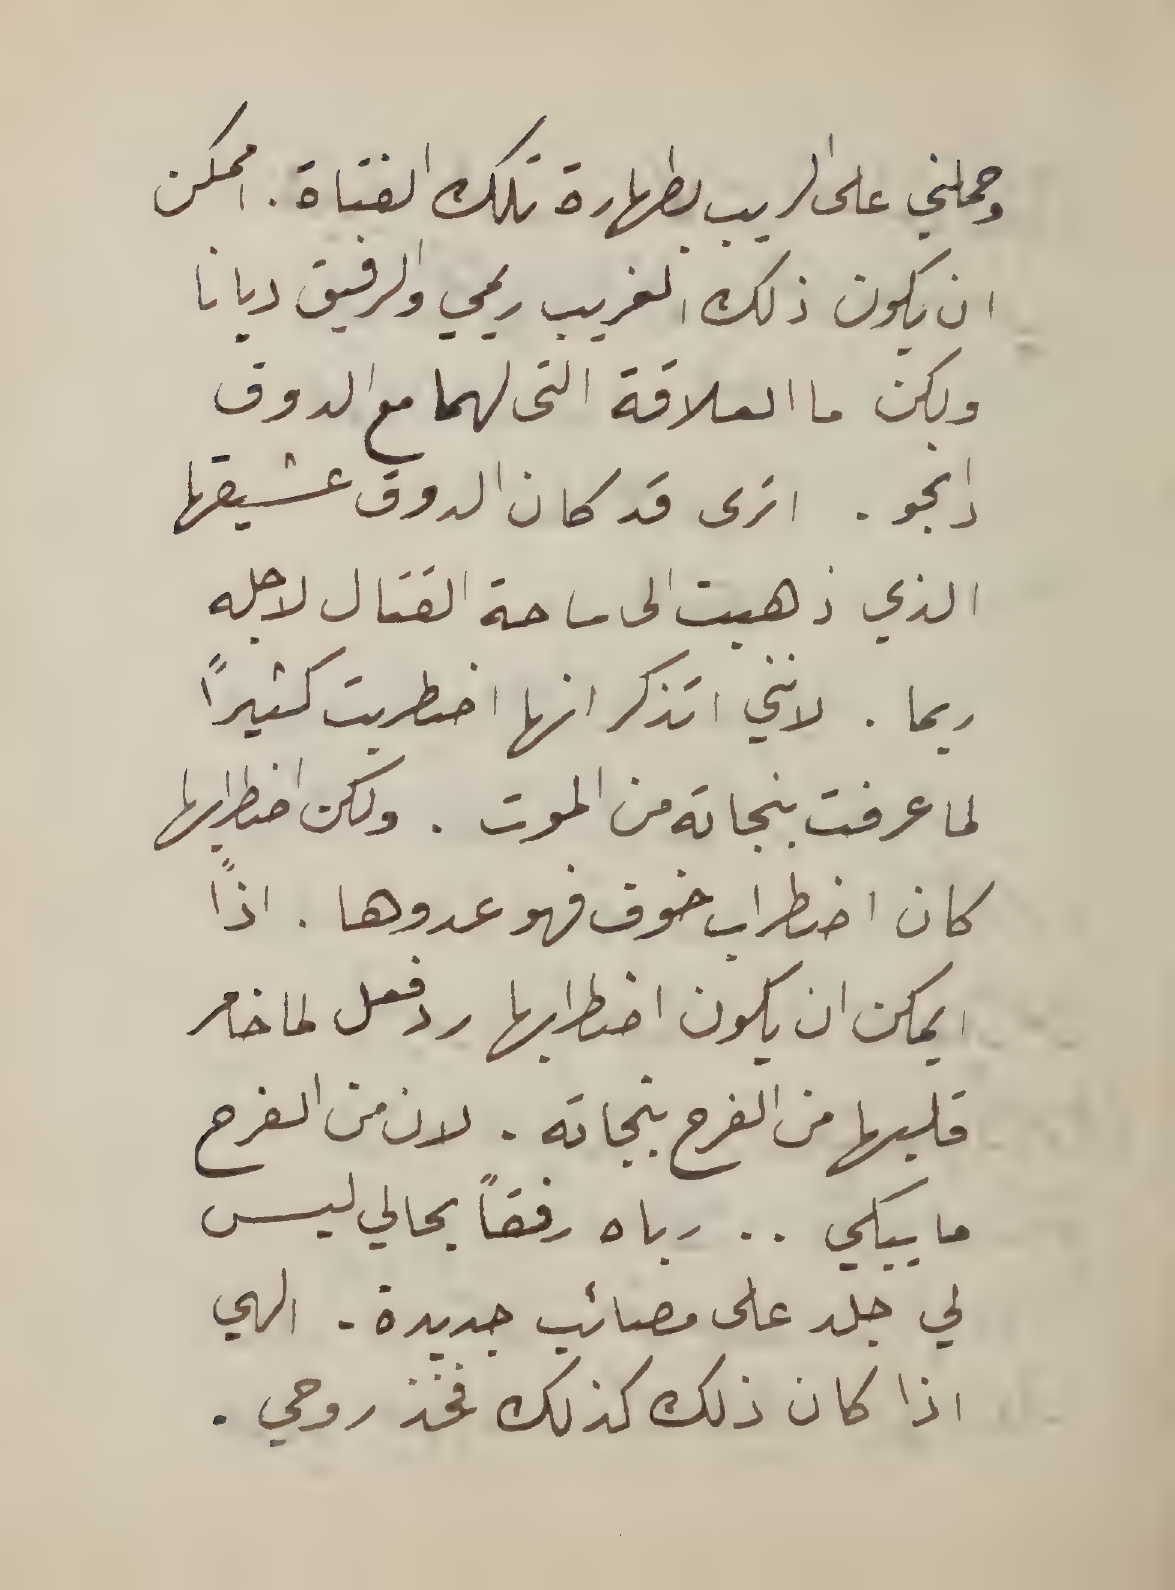 وحملني على الريب بطهارة تلك الفتاة . اممكن
ان يكون ذلك الغريب ريمي والرفيق ديانا
ولكن ما العلاقة التى لهما مع الدوق
دانجو . اترى قد كان الدوق عشيقها
الذي ذهبت الى ساحة القتال لاجله
ربما . لانني اتذكر انها اضطربت كثيراً
لما عرفت بنجاته من الموت . ولكن اضطرابها
كان اضطراب خوف فهو عدوها . اذاً
ايمكن ان يكون اضطرابها رد فعل لما خامر
قلبها من الفرح بنجاته . لان من الفرح
ما يبكي .. رباه رفقاً بحالي ليس
لي جلد على مصائب جديدة . الهي
اذا كان ذلك كذلك فخذ روحي .